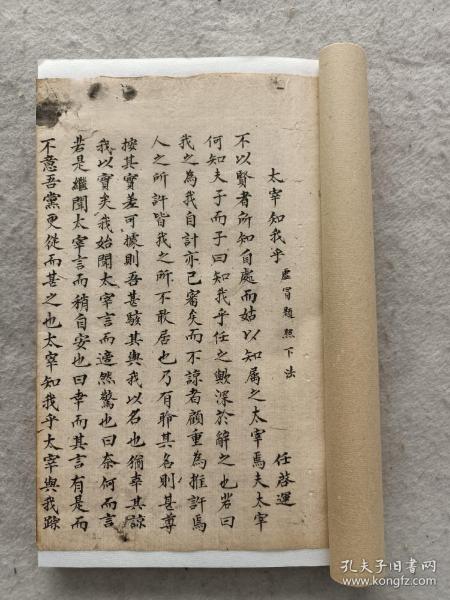 太宰知我乎 虛冒題照下法
任啓運
不以賢者所知自處而姑以知属之太宰焉夫太宰
何知夫子而子曰知我乎任之歟深於辭之也若曰
我之為我自計亦已審矣而不諒者顧重為推許焉
人之所許皆我之所不敢居也乃有聆其名則甚尊
按其實差可據則吾甚駭其與我以名也猶幸其諒
我以實矣我始聞太宰言而適然驚也曰奈何而言
若是繼聞太宰言而稍自安也曰幸而其言有是而
不意吾黨更從而甚之也太宰知我乎太宰與我踪
孔夫子旧书网
book.kongfz.com